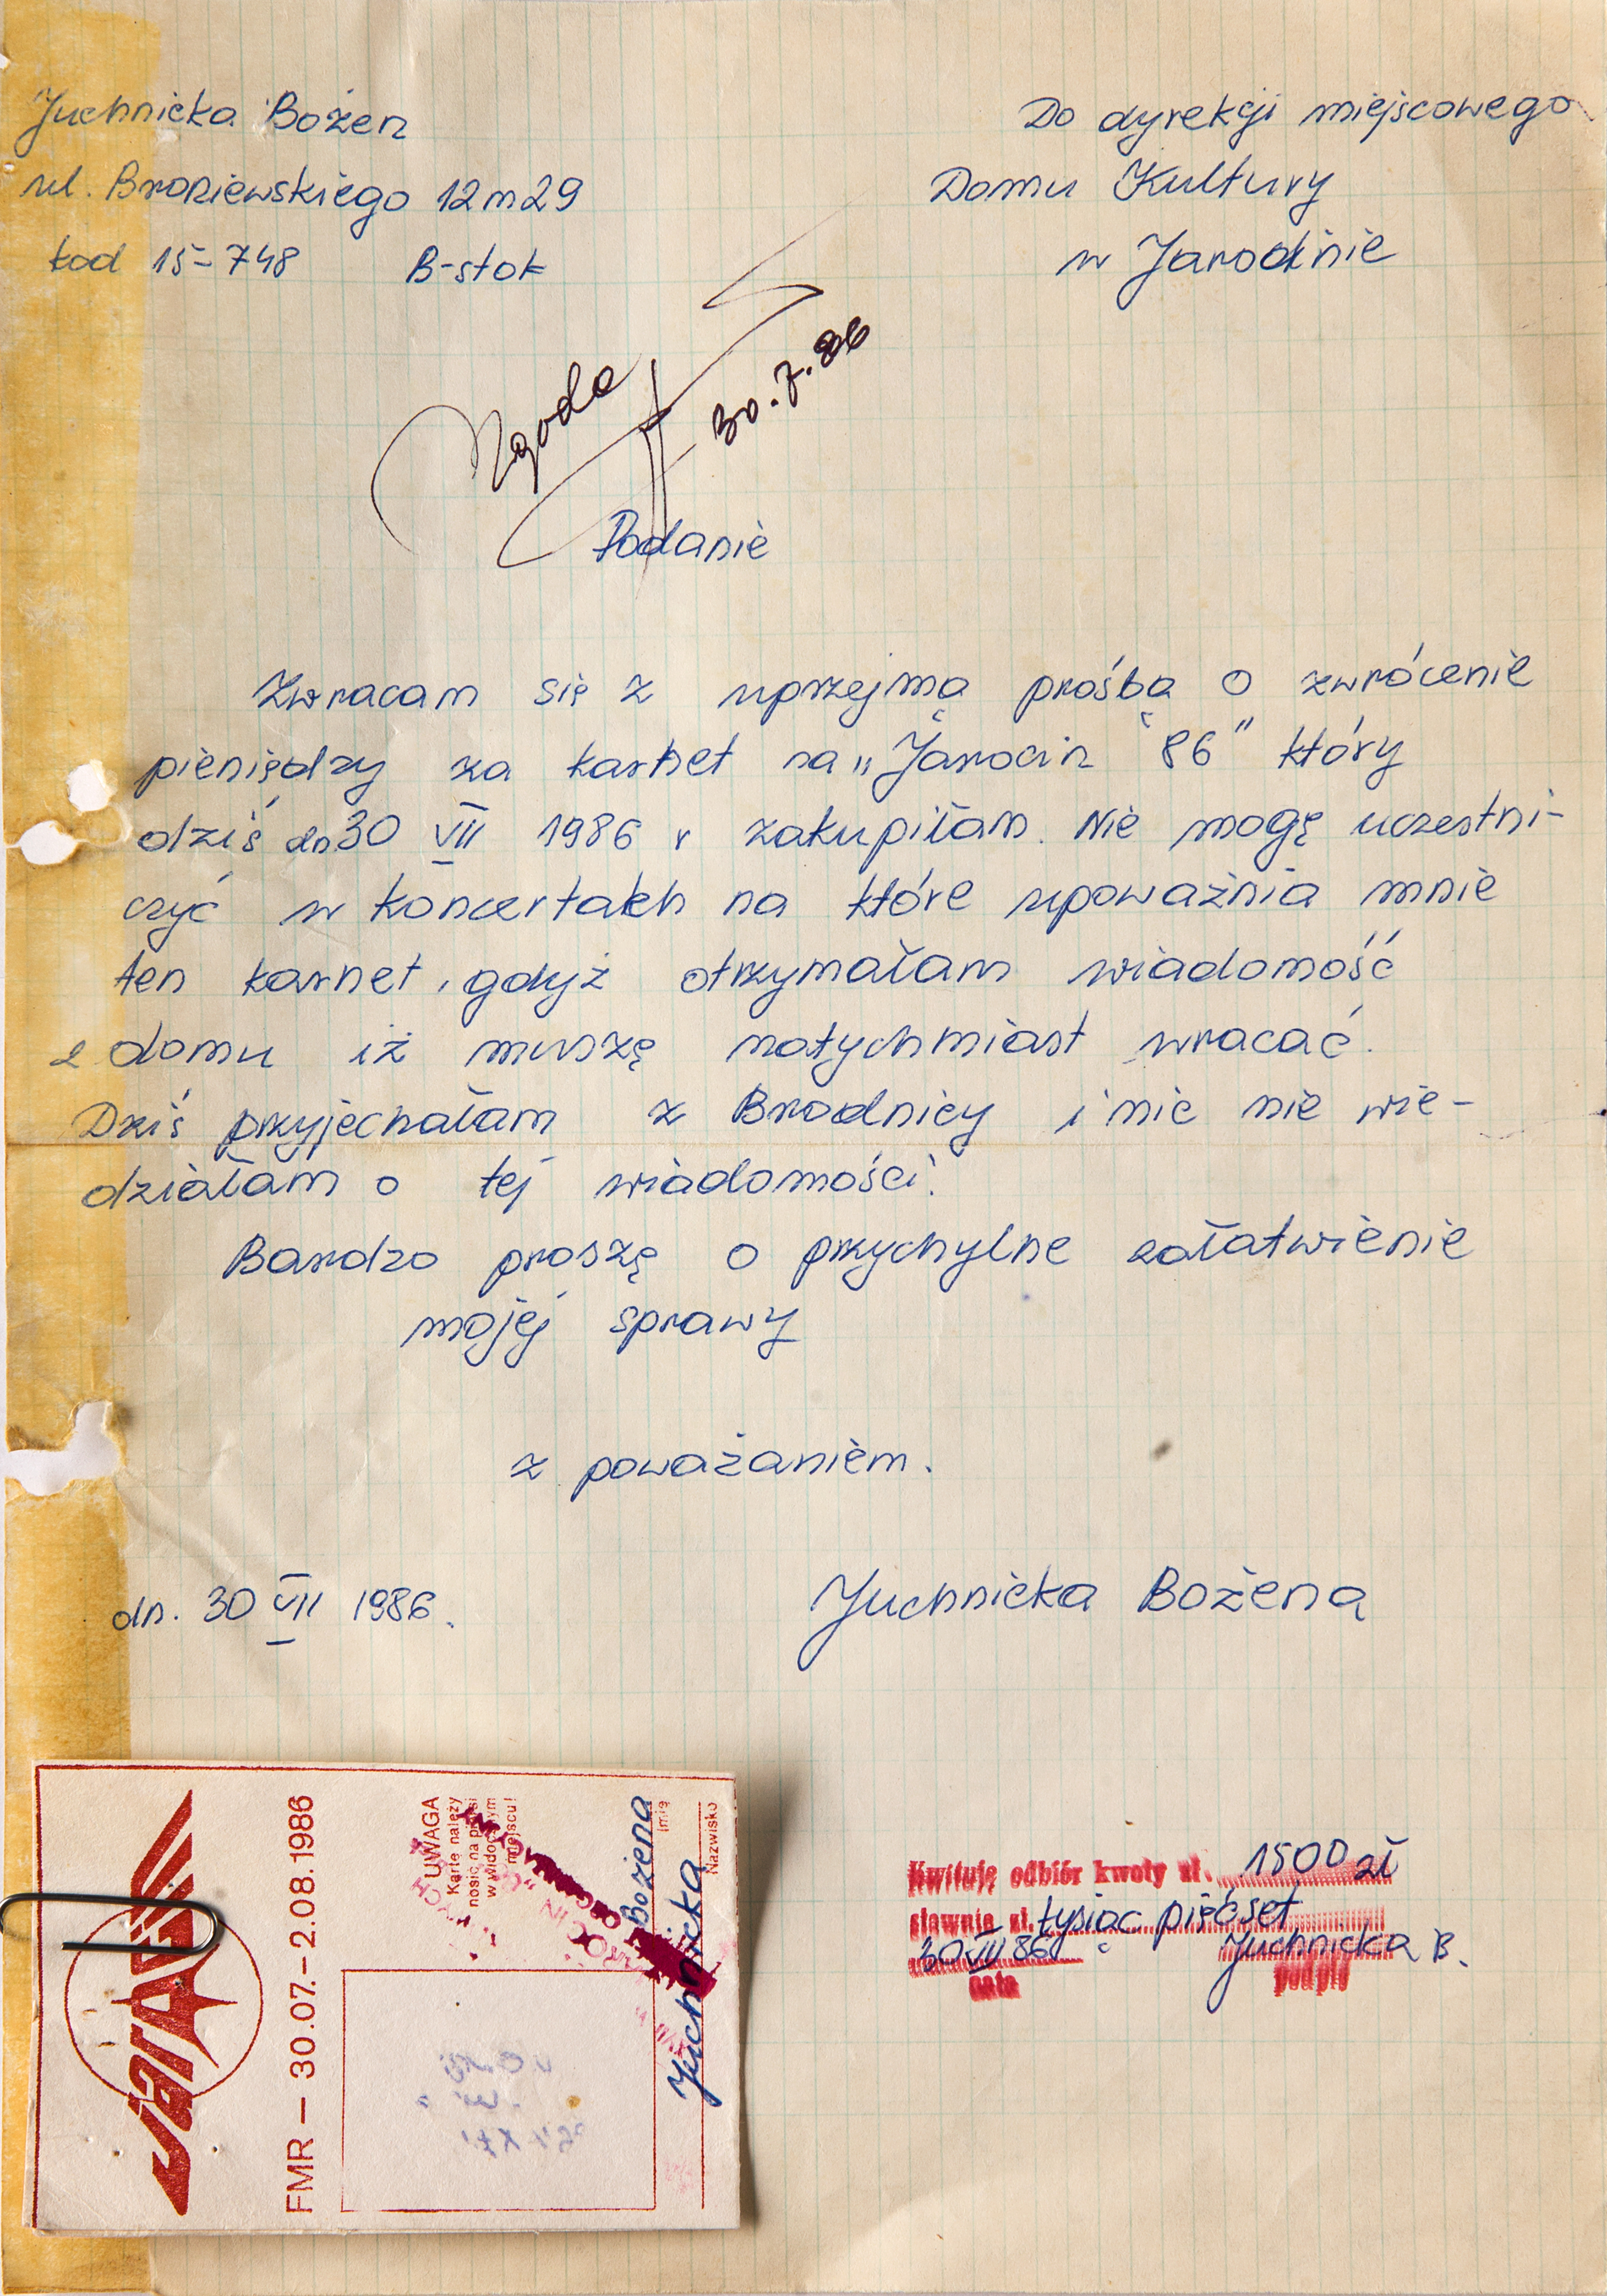 Juchnicka Bożen
ul. Broniewskiego 12 m 29
kod 15-748 B-stok
Do dyrekcji miejscowego
Domu Kultury
w Jarocinie
Zgoda
30.7.86
Podanie
Zwracam się z uprzejmą prośbą o zwrócenie
pieniędzy za karnet na „Jarocin 86" który
dziś dn 30 VII 1986 r zakupiłam. Nie mogę uczestni-
czyć w koncertach na które upoważnia mnie
ten karnet, gdyż otrzymałam wiadomość
z domu iż muszę natychmiast wracać.
Dziś przyjechałam z Brodnicy i nic nie wie-
działam o tej wiadomości.
Bardzo proszę o przychylne załatwienie
mojej sprawy
z poważaniem.
dn. 30 VII 1986.
Juchnicka Bożena
FMR — 30.07.-2.08.1986
UWAGA
Kartę należy
nosić na piersi
w widocznym
miejscu!
Bożena
Imię
Juchnicka
Nazwisko
Kwituję odbiór kwoty zł. 1500 zł
słownie zł. tysiąc pięćset
30 VII 86 Juchnicka B.
data podpis